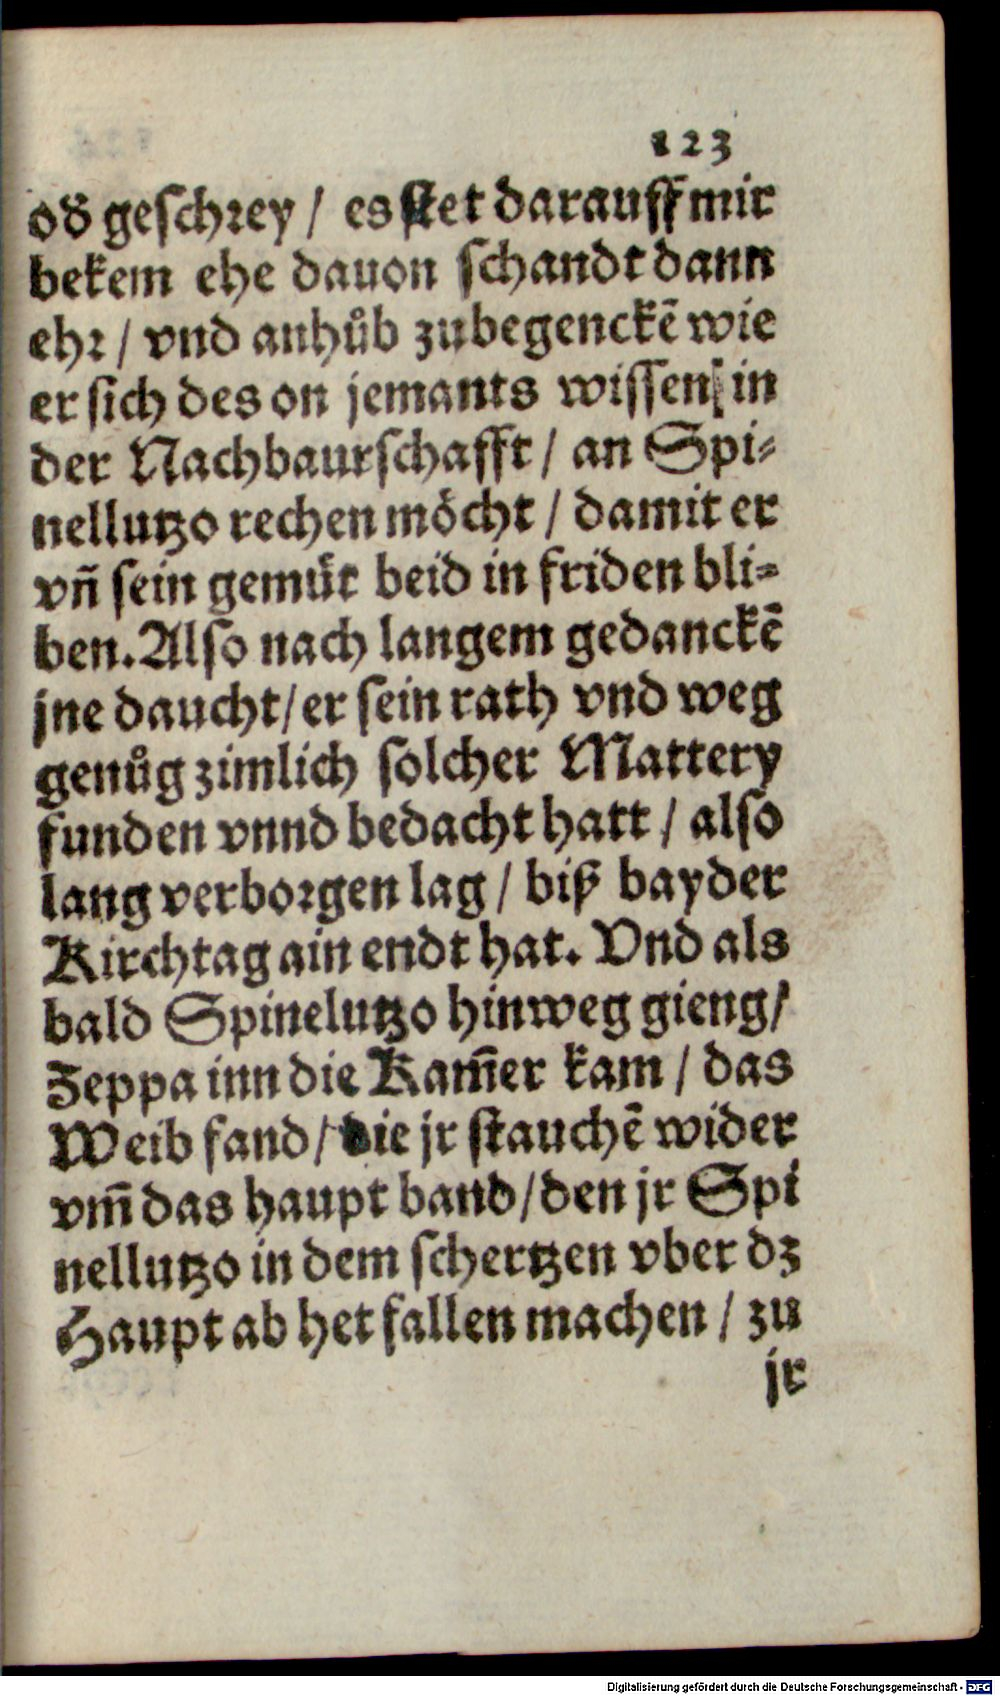 123
od̕ geschrey / es stet darauff mir
bekem ehe dauon schandt dann
ehr / vnd anhůb zubegenckē wie
er sich des on jemants wissen in
der Nachbaurschafft / an Spi-
nellutzo rechen möcht / damit er
vñ sein gemüt beid in friden bli-
ben. Also nach langem gedanckē
jne daucht / er sein rath vnd weg
genůg zimlich solcher Mattery
funden vnnd bedacht hatt / also
lang verborgen lag / biß bayder
Kirchtag ain endt hat. Vnd als
bald Spinelutzo hinweg gieng /
Zeppa inn die Kam̄er kam / das
Weib fand / die jr stauchē wider
vm̄ das haupt band / den jr Spi
nellutzo in dem schertzen vber dz
Haupt ab het fallen machen / zu
jr
Digitalisierung gefördert durch die Deutsche Forschungsgemeinschaft - DFG